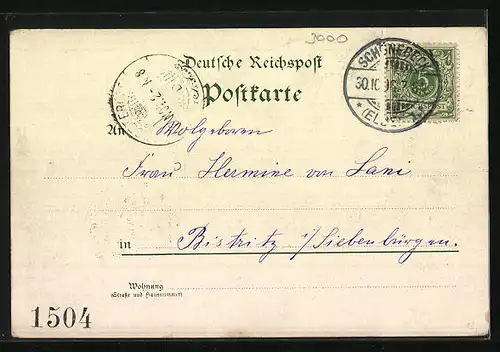 3000
Deutsche Reichspost
Postkarte
SCHÖNEBECK
30.10.98
*(ELBE)
5
An Wolgeboren
Frau Hermine von Lani
in Bistritz i/Siebenbürgen.
Wohnung
(Straße und Hausnummer)
1504